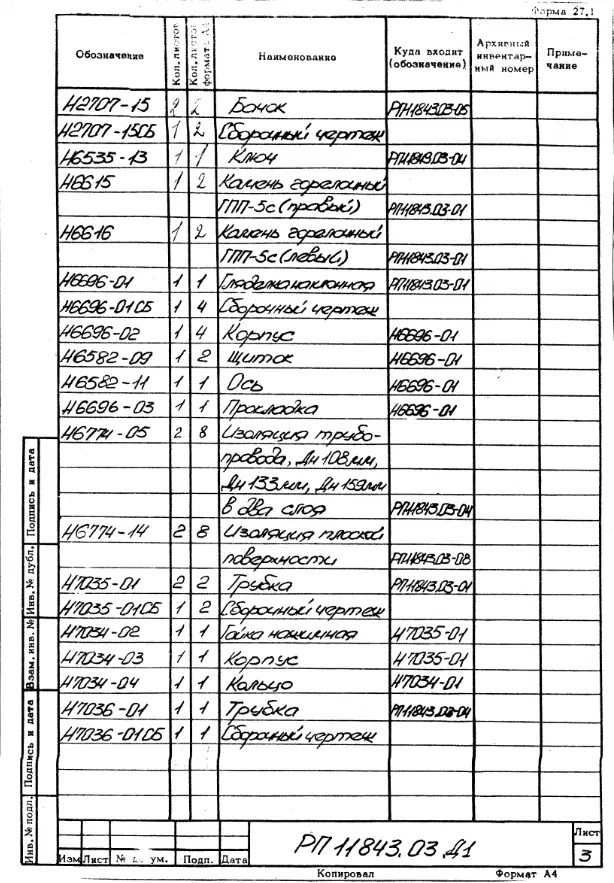 Форма 27.1
Обозначение Кол. листов Кол. листов формата А4 Наименование Куда входит (обозначение) Архивный инвентарный номер Примечание
Н2707-15 2 2 Бачок РП11843.03-05
Н2707-15СБ 1 2 Сборочный чертеж
Н6535-13 1 1 Ключ РП11843.03-04
Н6615 1 2 Камень горелочный
ГПП-5с (правый) РП11843.03-01
Н6616 1 2 Камень горелочный
ГПП-5с (левый) РП11843.03-01
Н6696-01 1 1 Гляделка наклонная РП11843.03-01
Н6696-01СБ 1 4 Сборочный чертеж
Н6696-02 1 4 Корпус Н6696-01
Н6582-09 1 2 Щиток Н6696-01
Н6582-11 1 1 Ось Н6696-01
Н6696-03 1 1 Прокладка Н6696-01
Н6774-05 2 8 Изоляция трубо-
провода, Дн 108мм,
Дн 133мм, Дн 159мм
в два слоя РП11843.03-04
Н6774-14 2 8 Изоляция плоской
поверхности РП11843.03-08
Н7035-01 2 2 Трубка РП11843.03-01
Н7035-01СБ 1 2 Сборочный чертеж
Н7034-02 1 1 Гайка нажимная Н7035-01
Н7034-03 1 1 Корпус Н7035-01
Н7034-04 1 1 Кольцо Н7034-01
Н7036-01 1 1 Трубка РП11843.03-04
Н7036-01СБ 1 1 Сборочный чертеж
Подпись и дата
Инв. № дубл.
Взам. инв. №
Подпись и дата
Инв. № подл.
Изм Лист № ум. Подп. Дата
РП 11843.03 Д1
Лист
3
Копировал Формат А4